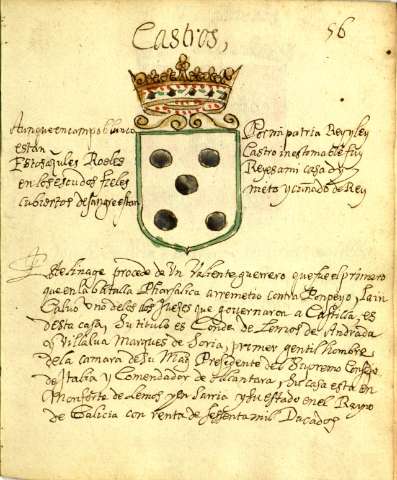 Castros,
56
Aunque en campo blanco
están
Estos açules Roeles
en los escudos fieles
cubiertos de sangre están
Por mi patria Rey y ley
Castro inestomable fuy
Reyes a mi casa dy
nieto y cuñado de Rey
Este linage procede de Un Valiente guerrero que fue el primero
que en la batalla Pharsalica arremetio contra Ponpeyo, Lain
Calvo Uno de los dos Jueses que governaron a Castilla, es
desta casa, Su titulo es Conde de Lemos de Andrada
y Villalua Marques de Soria, primer gentil hombre
de la camara de su Mag. Presidente del Supremo Consejo
de Italia y Comendador de Alcantara, Su Casa esta en
Monforte de Lemos y en Sarria y su estado en el Reyno
de Galicia con renta de sessenta mil Ducados